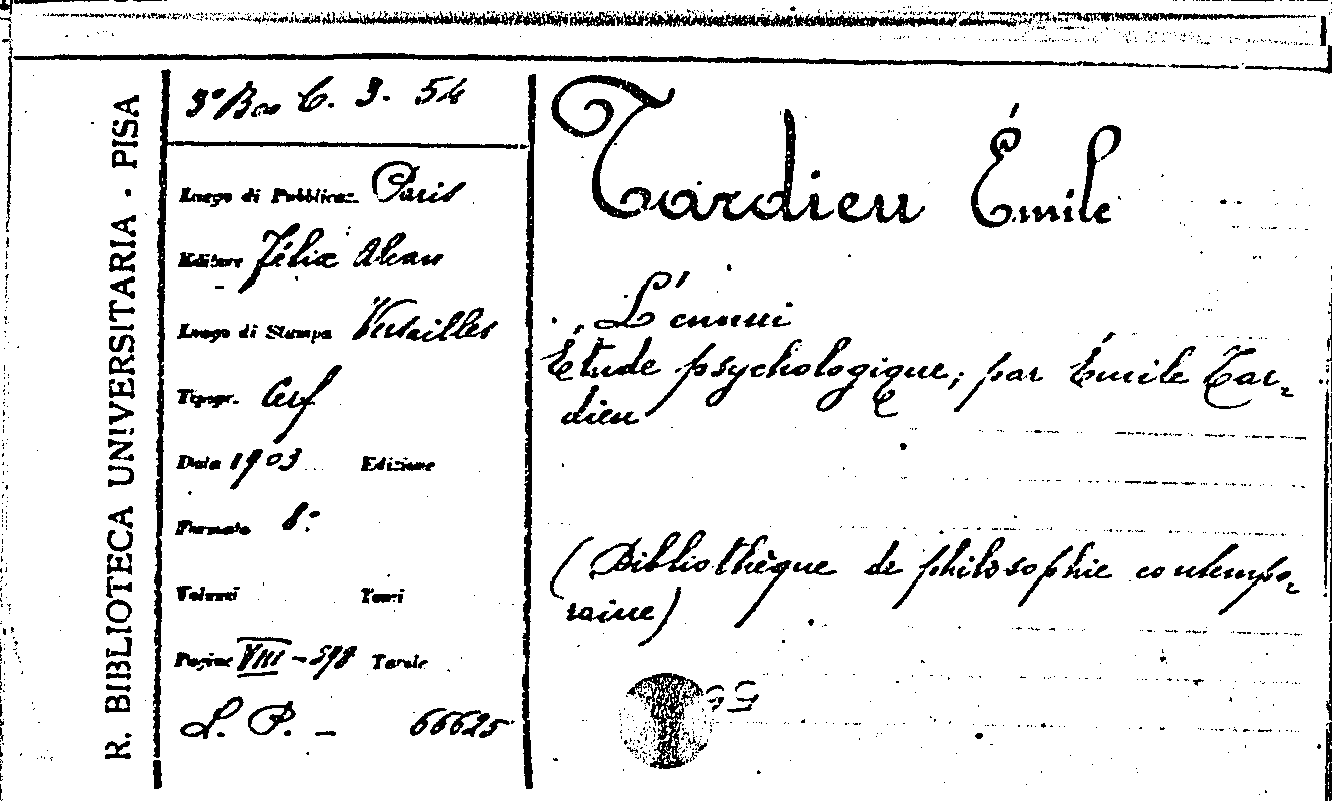 R. BIBLIOTECA UNIVERSITARIA · PISA
C. 3. 54
Luogo di Pubblicaz. Paris
Editore Félix Alcan
Luogo di Stampa Versailles
Tipogr. Cerf
Data 1903 Edizione
Formato 8°
Volumi Tomi
Pagine VIII - 598 Tavole
L. P. - 66625
Tardieu Émile
L'ennui
Étude psychologique; par Émile Tar-
dieu
(Bibliothèque de philosophie contempo-
raine)